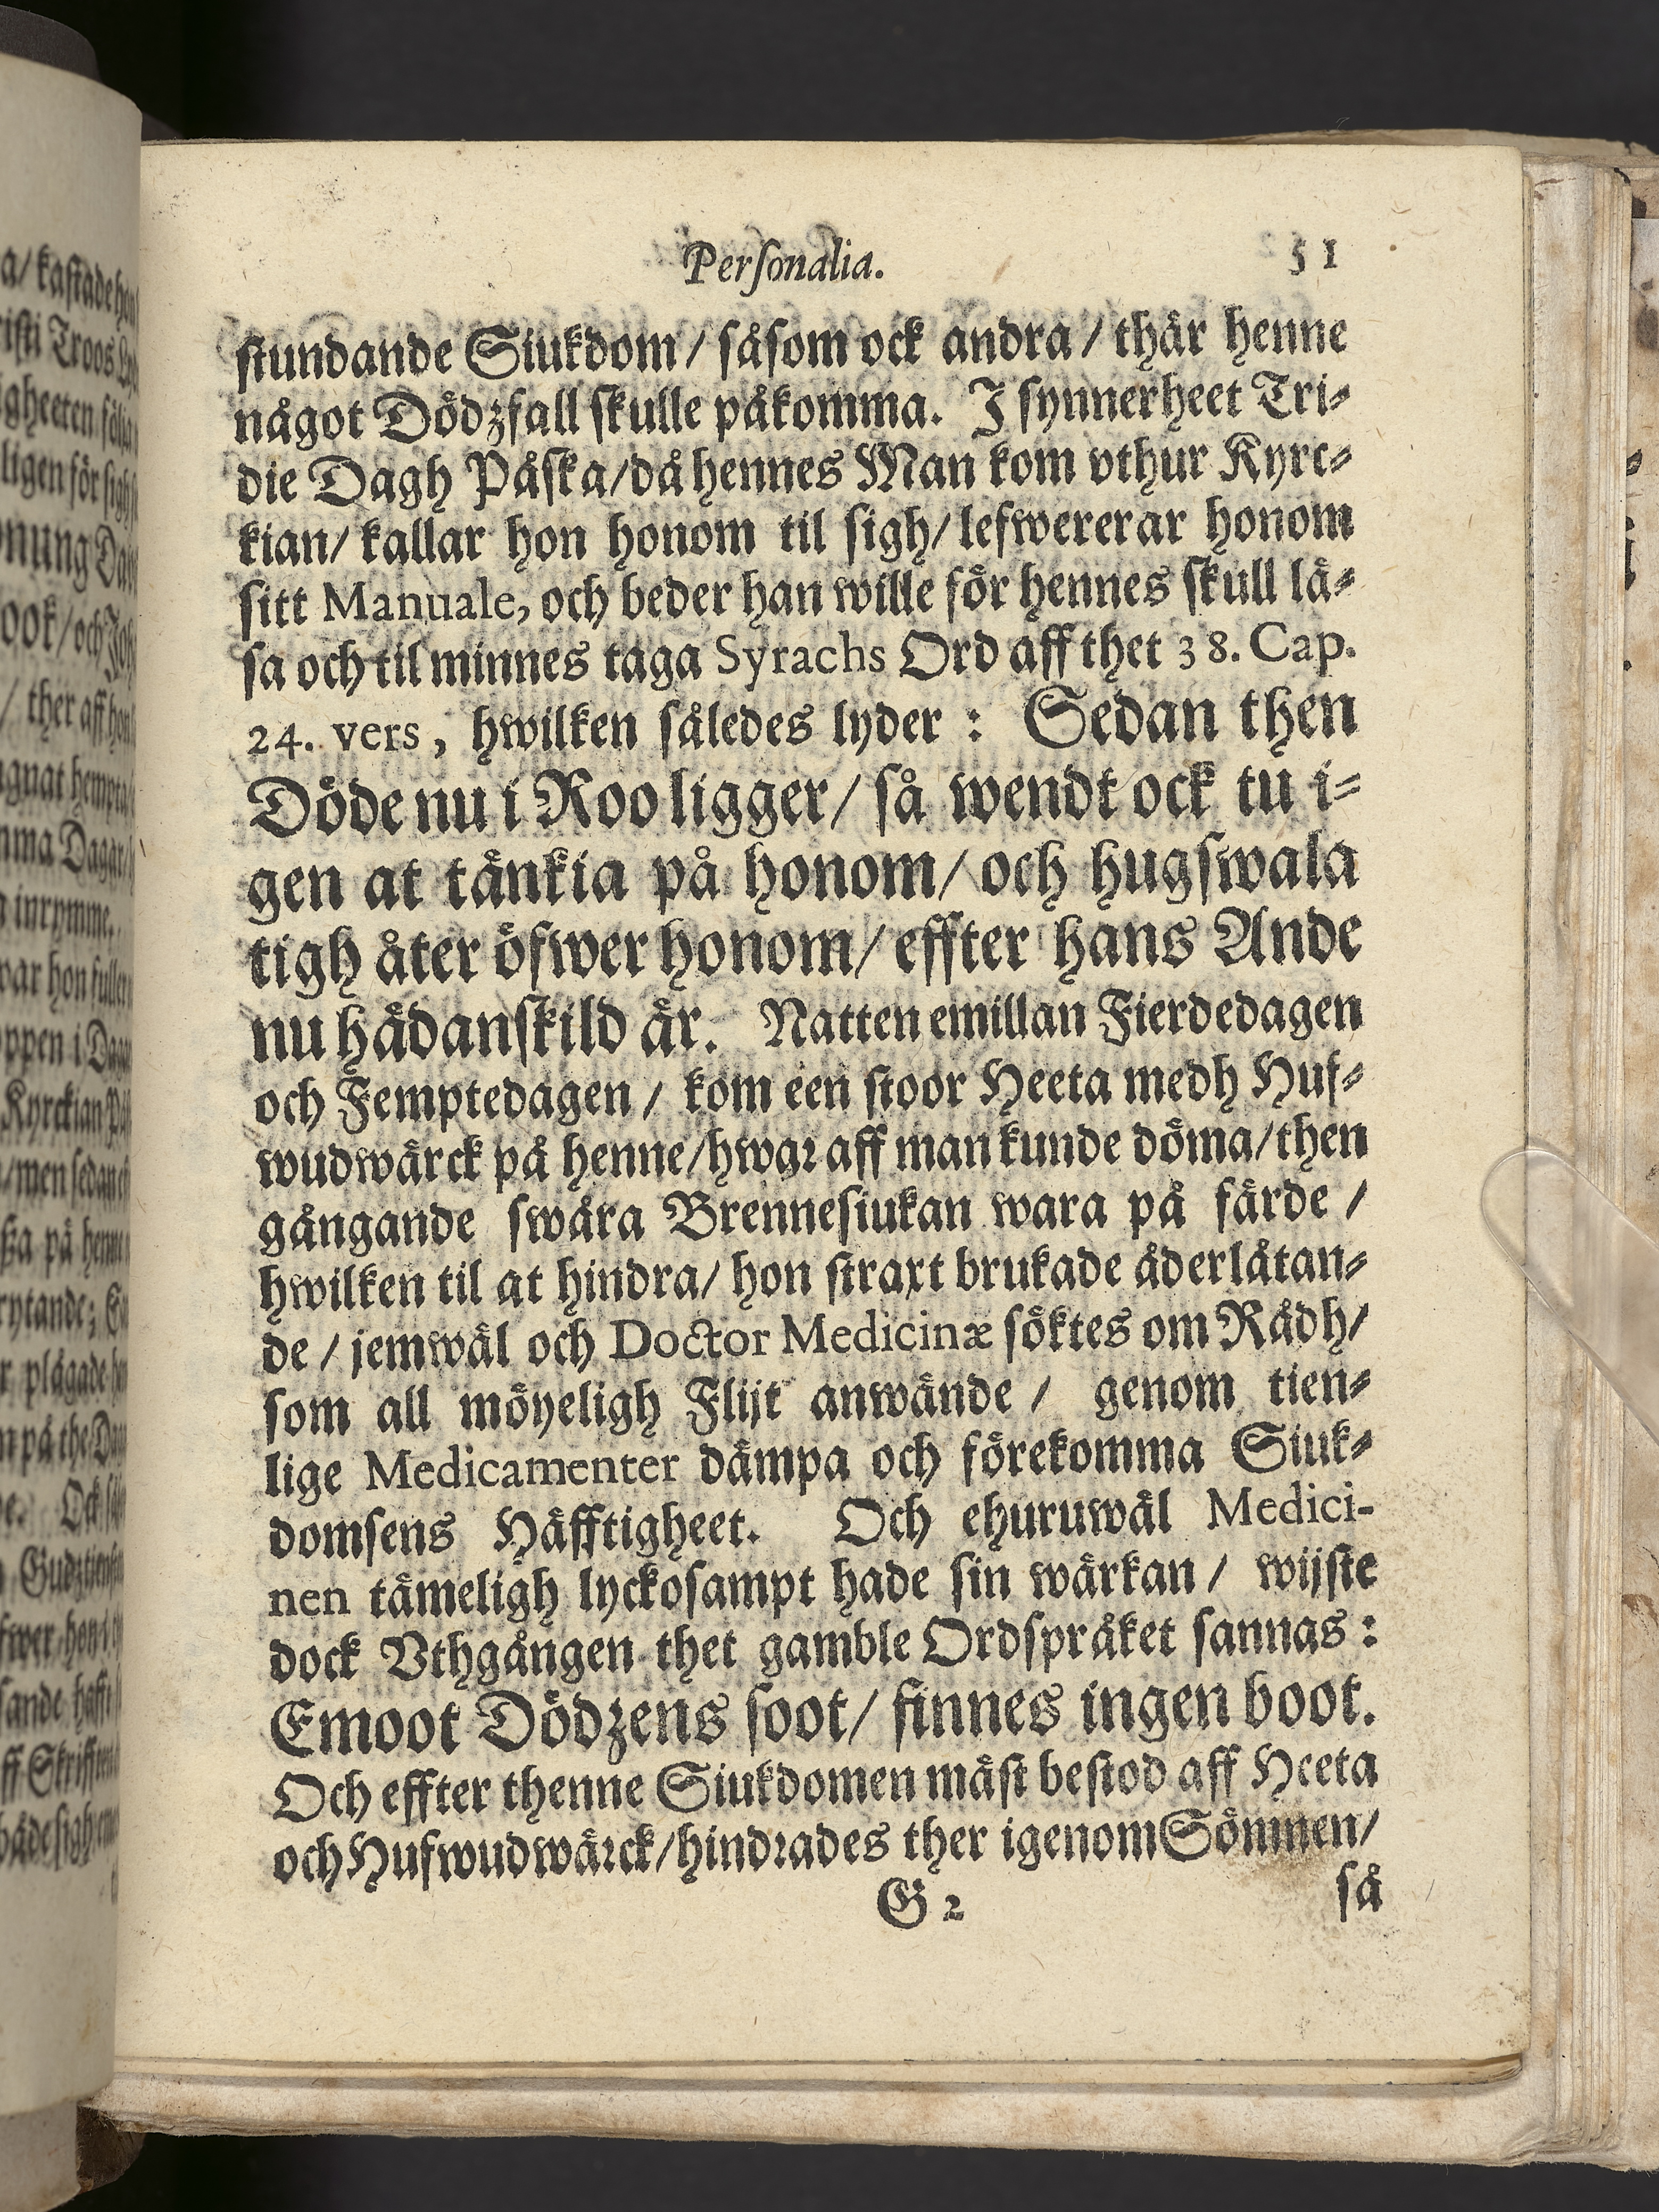 Personalia. 51
stundande Siukdom / såsom ock andra / thär henne
något Dödzfall skulle påkomma. I synnerheet Tri-
die Dagh Påska/då hennes Man kom vthur Kyrc-
kian/ kallar hon honom til sigh/ lefwererar honom
sitt Manuale, och beder han wille för hennes skull lä-
sa och til minnes taga Syrachs Ord aff thet 38. Cap.
24. vers, hwilken således lyder : Sedan then
Döde nu i Roo ligger/ så wendt ock tu i-
gen at tänkia på honom/ och hugswala
tigh åter öfwer honom/ effter hans Ande
nu hådanskild är. Natten emillan Fierdedagen
och Femptedagen / kom een stoor Heeta medh Huf-
wudwärck på henne/hwar aff man kunde döma/then
gångande swåra Brennesiukan wara på färde /
hwilken til at hindra/ hon straxt brukade åderlåtan-
de / jemwäl och Doctor Medicinæ söktes om Rådh/
som all möyeligh Flijt anwände / genom tien-
lige Medicamenter dämpa och förekomma Siuk-
domsens Häfftigheet. Och ehuruwäl Medici-
nen tämeligh lyckosampt hade sin wärkan / wijste
dock Vthgången thet gamble Ordspråket sannas :
Emoot Dödzens soot/ finnes ingen boot.
Och effter thenne Siukdomen mäst bestod aff Heeta
och Hufwudwärck/hindrades ther igenom Sömnen/
G 2 så